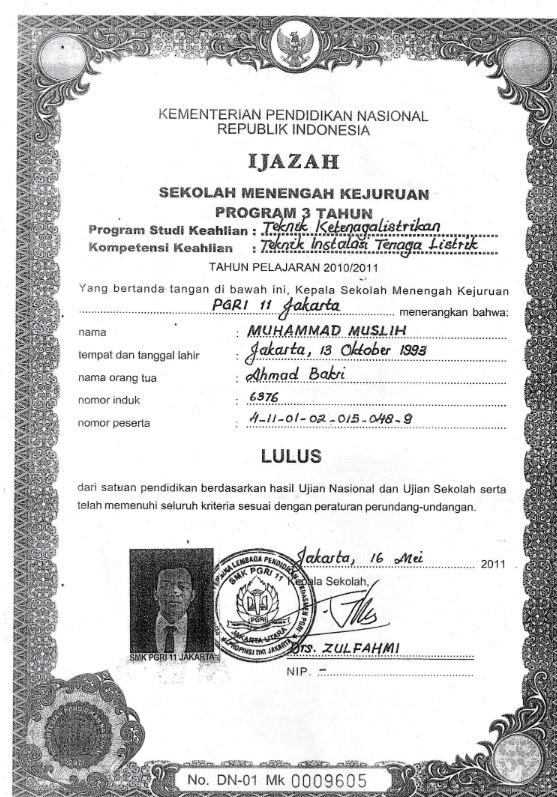 KEMENTERIAN PENDIDIKAN NASIONAL
REPUBLIK INDONESIA
IJAZAH
SEKOLAH MENENGAH KEJURUAN
PROGRAM 3 TAHUN
Program Studi Keahlian : Teknik Ketenagalistrikan
Kompetensi Keahlian : Teknik Instalasi Tenaga Listrik
TAHUN PELAJARAN 2010/2011
Yang bertanda tangan di bawah ini, Kepala Sekolah Menengah Kejuruan
PGRI 11 Jakarta menerangkan bahwa:
nama : MUHAMMAD MUSLIH
tempat dan tanggal lahir : Jakarta, 13 Oktober 1993
nama orang tua : Ahmad Bakri
nomor induk : 6376
nomor peserta : 4-11-01-02-015-048-9
LULUS
dari satuan pendidikan berdasarkan hasil Ujian Nasional dan Ujian Sekolah serta
telah memenuhi seluruh kriteria sesuai dengan peraturan perundang-undangan.
Jakarta, 16 Mei 2011
Kepala Sekolah,
SMK PGRI 11
PGRI
JAKARTA UTARA
PROPINSI DKI JAKARTA
Drs. ZULFAHMI
SMK PGRI 11 JAKARTA
NIP. -
No. DN-01 Mk 0009605